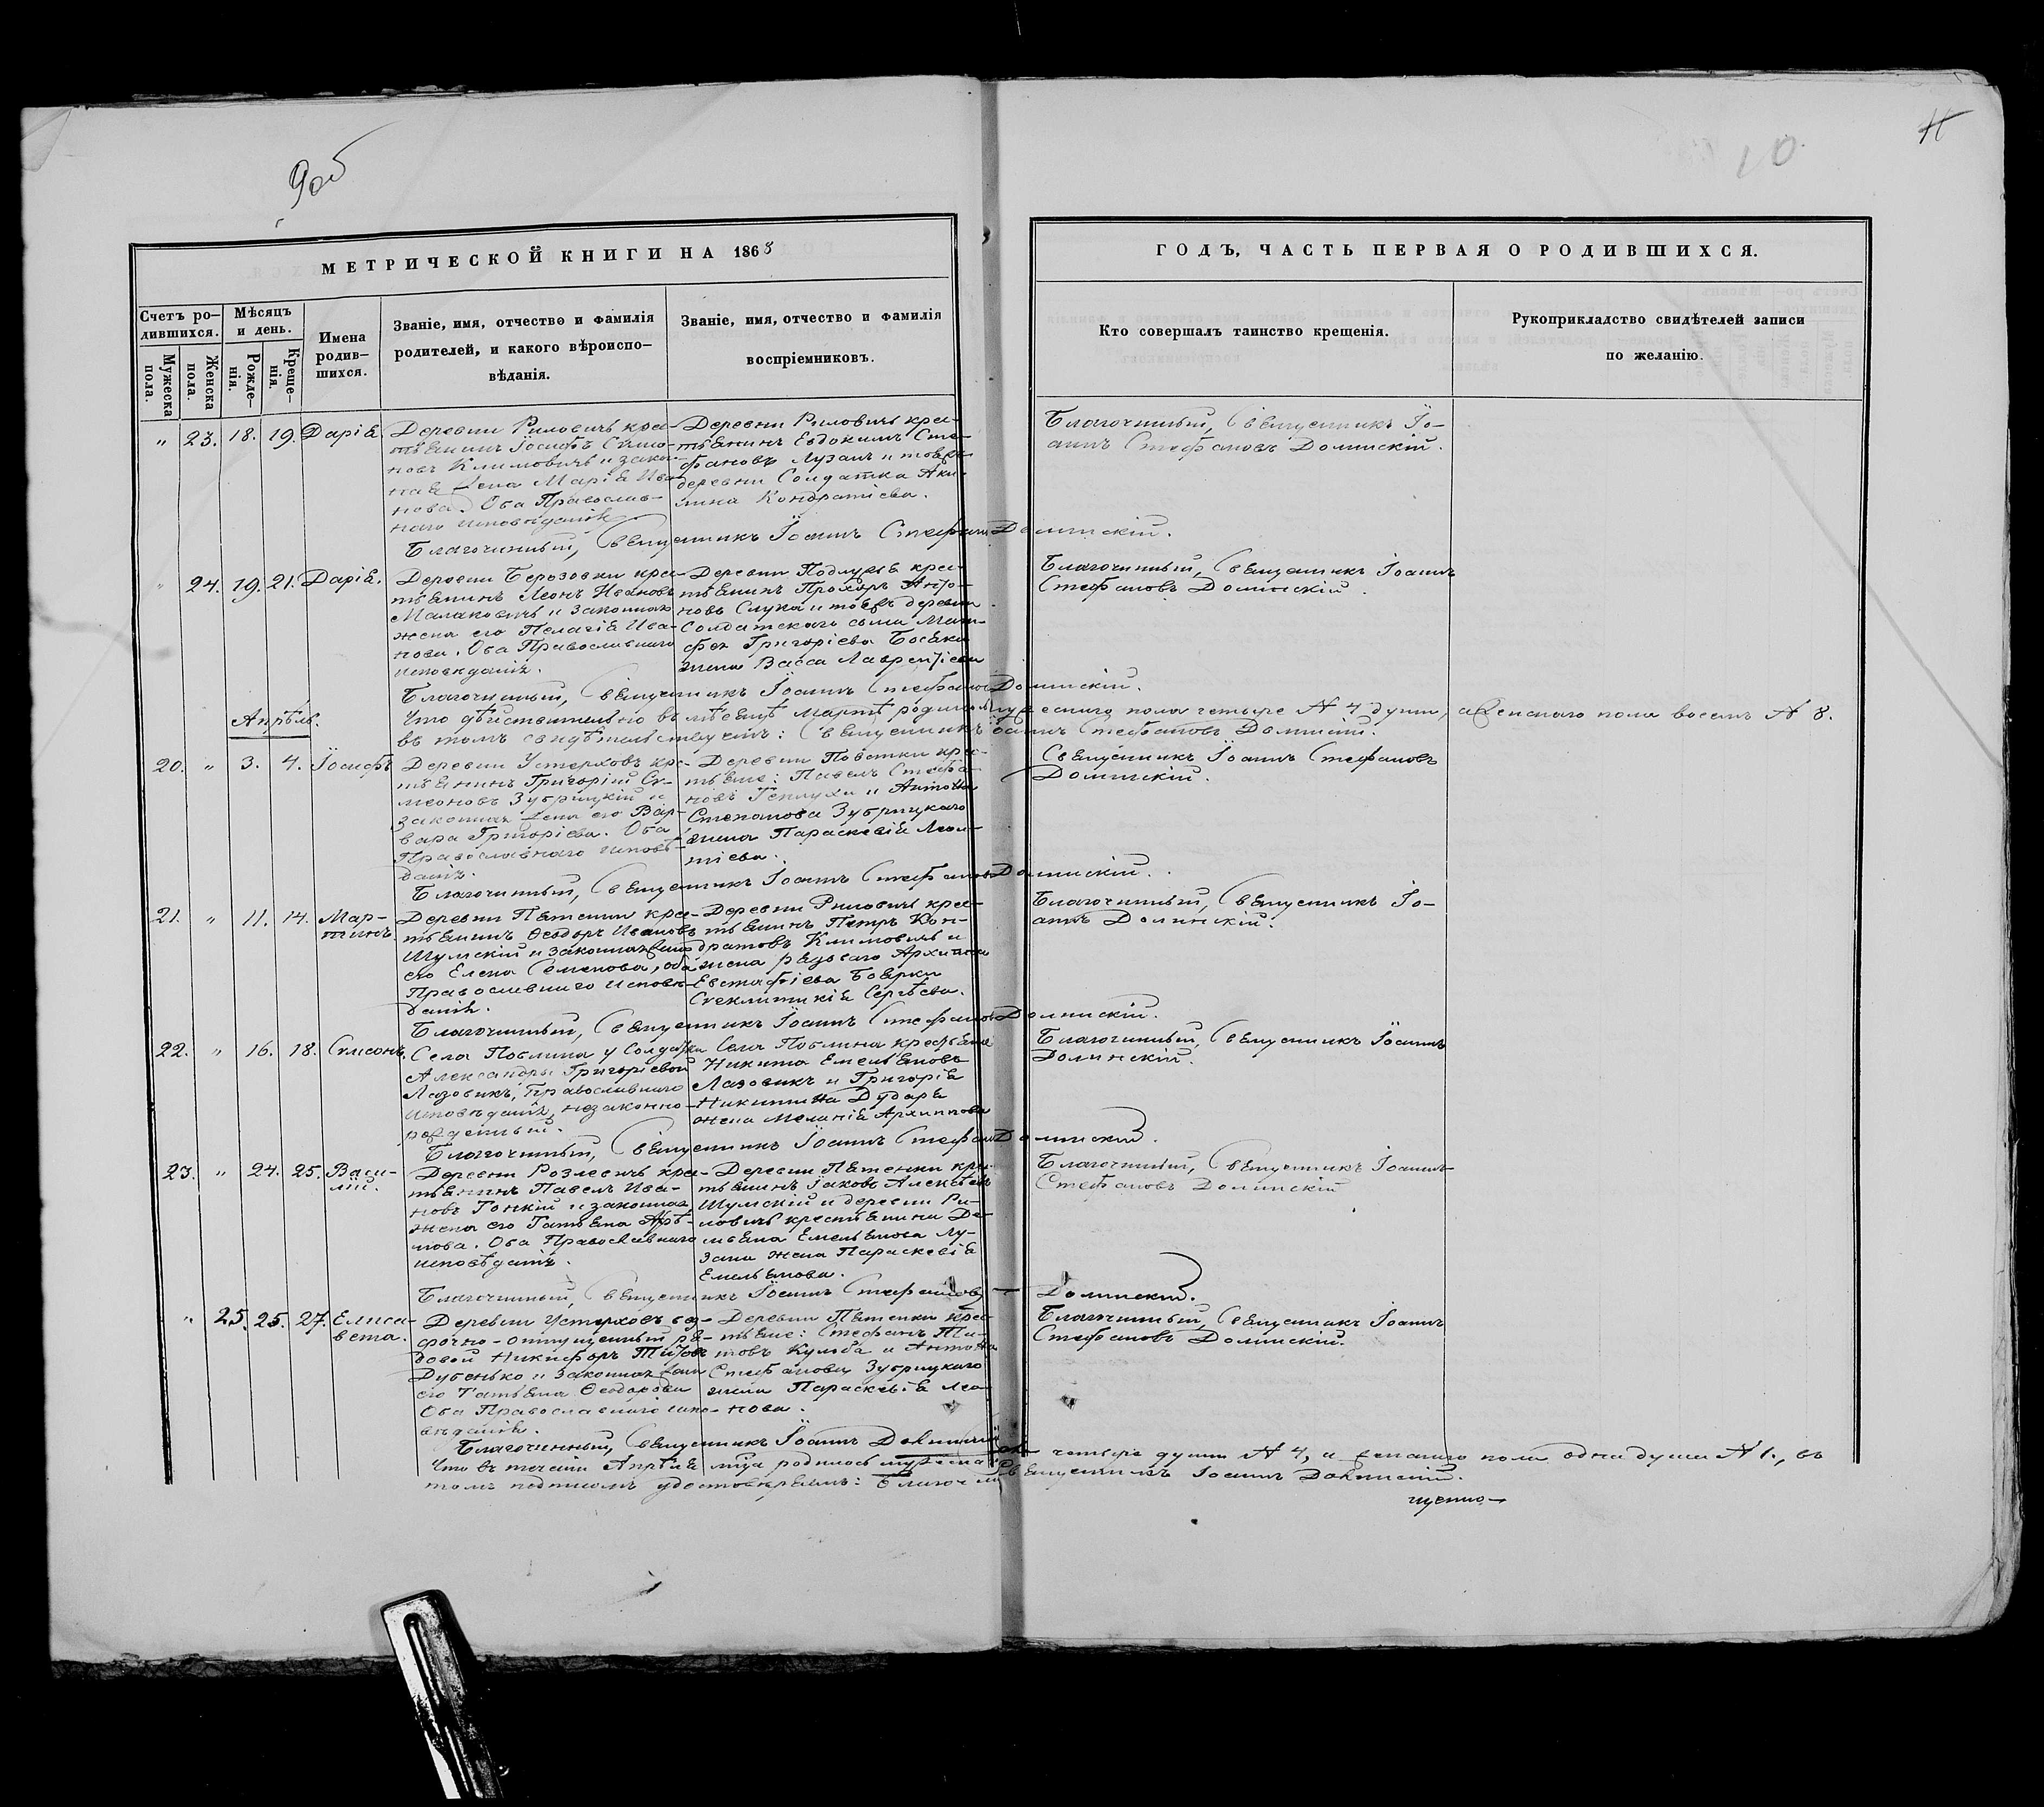 9об
10
11
МЕТРИЧЕСКОЙ КНИГИ НА 1868
Счетъ ро-
дившихся.
Мужеска
пола.
Женска
пола.
Мѣсяцъ
и день.
Рожде-
нія.
Креще-
нія.
Имена
родив-
шихся.
Званіе, имя, отчество и фамилія
родителей, и какого вѣроиспо-
вѣданія.
Званіе, имя, отчество и фамилія
воспріемниковъ.
ГОДЪ, ЧАСТЬ ПЕРВАЯ О РОДИВШИХСЯ.
Кто совершалъ таинство крещенія.
Рукоприкладство свидѣтелей записи
по желанію.
" 23. 18. 19. Дарія.
Деревни Риловичъ кре-
стьянинъ Іосифъ Симо-
новъ Климовичъ и закон-
ная жена Марія Ива-
нова. Оба Православ-
наго исповѣданія.
Деревни Риловичъ крес-
тьянинъ Евдокимъ Сте-
фановъ Лузанъ и тоей
деревни Солдатка Аки-
лина Кондратіева.
Благочинный, Священникъ Іо-
аннъ Стефановъ Долинскій.
Благочинный, Священникъ Іоаннъ Стефановъ Долинскій.
" 24. 19. 21. Дарія.
Деревни Березовки крес-
тьянинъ Леонъ Ивановъ
Малаковичъ и законная
жена его Пелагія Ива-
нова. Оба Православнаго
исповѣданія.
Деревни Подлузья крес-
тьянинъ Прохоръ Анто-
новъ Слука и тоейжъ деревни
Солдатскаго сына Мат-
фея Григоріева Босяки
жена Васса Лаврентіева
Благочинный, Священникъ Іоаннъ
Стефановъ Долинскій.
Благочинный, Священникъ Іоаннъ Стефановъ Долинскій.
Что дѣйствительно въ мѣсяцѣ Мартѣ родилось мужескаго пола четыре № 4 души, а женскаго пола восемь № 8.
въ томъ свидѣтельствуемъ: Священникъ Іоаннъ Стефановъ Долинскій.
Апрѣль.
20. " 3. 4. Іосифъ
Деревни Устерховъ кре-
стьянинъ Григорій Си-
меоновъ Зубрицкій и
законная жена его Вар-
вара Григоріева. Оба
Православнаго исповѣ-
данія.
Деревни кре-
стьяне: Павелъ Стефа-
новъ и Антона
Степанова Зубрицкаго
жена Параскевія Леон-
тіева.
Священникъ Іоаннъ Стефановъ
Долинскій.
Благочинный, Священникъ Іоаннъ Стефановъ Долинскій.
21. " 11. 14. Мар-
тинъ.
Деревни Пятенки крес-
тьянинъ Ѳеодоръ Ивановъ
Шумскій и законная жена
его Елена Семенова, оба
Православнаго исповѣ-
данія.
Деревни Риловичъ крес-
тьянинъ Петръ Кон-
дратовъ Климовичъ и
жена рядоваго Архипа
Евстафіева Боярки
Стеклитикія Сергѣева.
Благочинный, Священникъ Іо-
аннъ Долинскій.
Благочинный, Священникъ Іоаннъ Стефановъ Долинскій.
22. " 16. 18. Симеонъ.
Села у Солдатки
Александры Григоріевой
Лазовикъ, Православнаго
исповѣданія, незаконно-
рожденный.
Села крестьяне
Никита Емельяновъ
Лазовикъ и Григорія
Никитина Дударя
жена Меланія Архиппова
Благочинный, Священникъ Іоаннъ
Долинскій.
Благочинный, Священникъ Іоаннъ Стефановъ Долинскій.
23. " 24. 25. Васи-
лій.
Деревни Розлевичъ кре-
стьянинъ Павелъ Ива-
новъ Гонкій и законная
жена его Татьяна Артѣ-
мова. Оба Православнаго
исповѣданія.
Деревни Пятенки кре-
стьянинъ Іаковъ Алексѣевъ
Шумскій и деревни Ри-
ловичъ крестьянина Де-
мьяна Емельянова Лу-
зана жена Параскевія
Емельянова.
Благочинный, Священникъ Іоаннъ
Стефановъ Долинскій
Благочинный, Священникъ Іоаннъ Стефановъ — Долинскій.
" 25. 25. 27. Елиса-
вета.
Деревни Устерховъ без-
срочно-отпущенный ря-
довой Никифоръ Титовъ
Дубенько и законная жена
его Татьяна Ѳеодорова
Оба Православнаго испо-
вѣданія.
Деревни Пятенки крес-
тьяне: Стефанъ Ти-
товъ Кульба и Антона
Стефанова Зубрицкаго
жена Параскевія Лео-
нова.
Благочинный, Священникъ Іоаннъ
Стефановъ Долинскій.
Благочинный, Священникъ Іоаннъ Долинскій
Что въ теченіи Апрѣля мѣсца родилось мужеска четыре души № 4, а женскаго пола одна душа № 1., въ
томъ подписомъ удостовѣряемъ: Благочинный Священникъ Іоаннъ Долинскій.